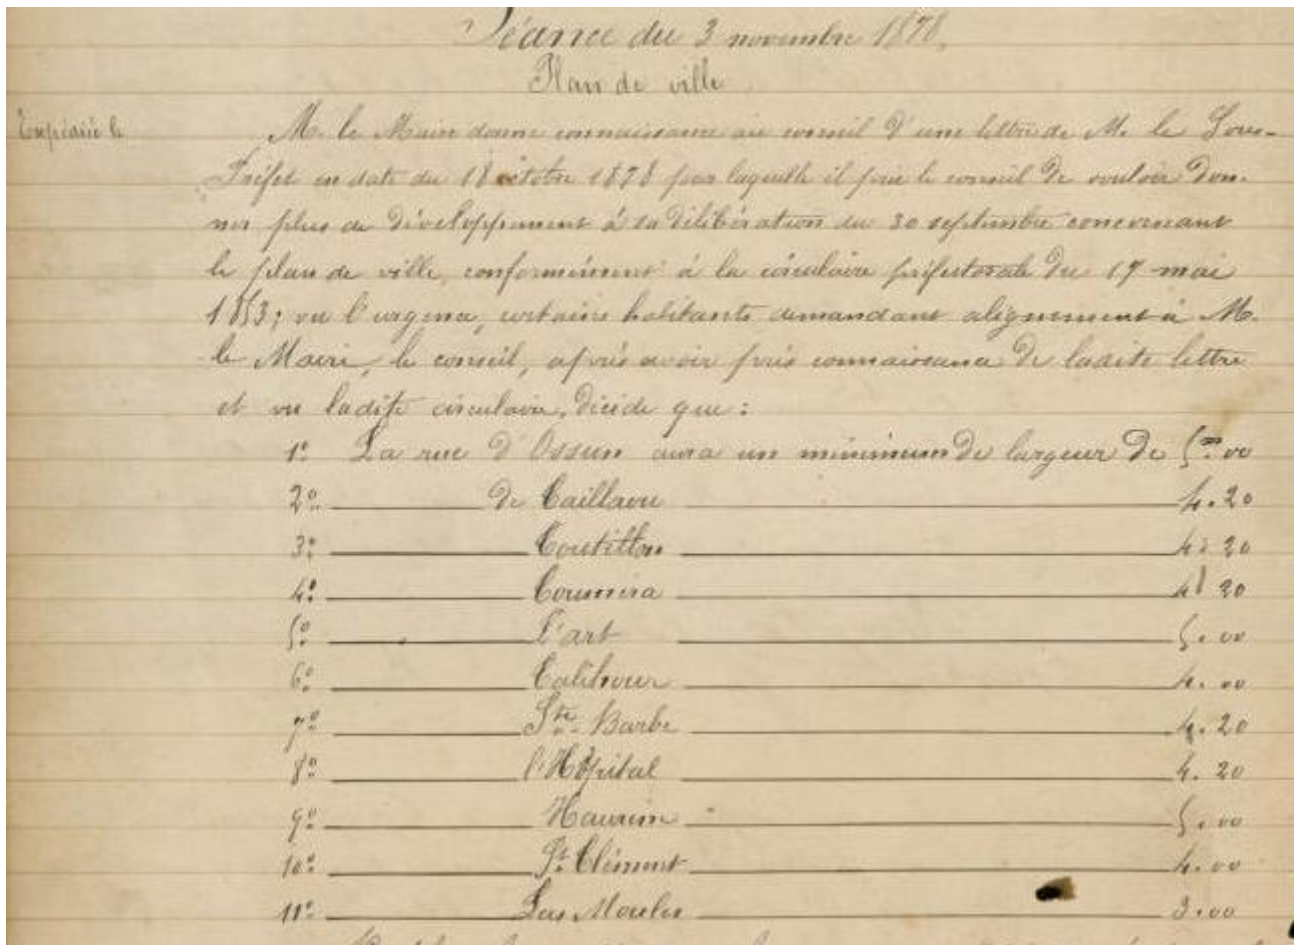 Séance du 3 novembre 1878.
Plan de ville
Expédiée le
M. le Maire donne connaissance au conseil d'une lettre de M. le Sous-
Préfet en date du 18 octobre 1878 par laquelle il prie le conseil de vouloir don-
ner plus de développement à sa délibération du 30 septembre concernant
le plan de ville, conformément à la circulaire préfectorale du 17 mai
1853; vu l'urgence, certains habitants demandant alignement à M.
le Maire, le conseil, après avoir pris connaissance de ladite lettre
et vu ladite circulaire, décide que :
1º La rue d'Ossun aura un minimum de largeur de 5m.00
2º de Caillaou 4.20
3º 4.20
4º 4.20
5º l'art 5.00
6º 4.00
7º Ste Barbe 4.20
8º l'Hôpital 4.20
9º 5.00
10º St Clément 4.00
11º Las Moules 3.00